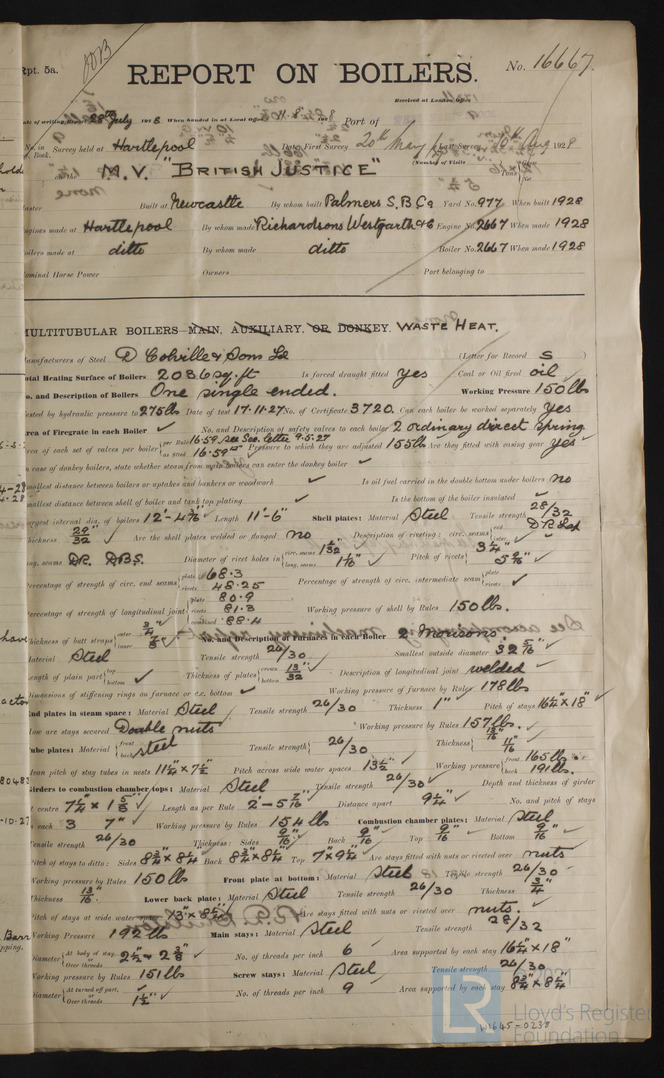 Rpt. 5a.
REPORT ON BOILERS.
No. 16667.
Received at London Office
28th July 1928 When handed in at Local Office 192 Port of
Survey held at Hartlepool Date, First Survey 20th May Last Survey Aug 1928
(Number of Visits
M.V. "BRITISH JUSTICE"
Built at Newcastle By whom built Palmers S.B. Co Yard No. 977 When built 1928
Engines made at Hartlepool By whom made Richardsons Westgarth & Co Engine No. 2667 When made 1928
Boilers made at ditto By whom made ditto Boiler No. 2667 When made 1928
Nominal Horse Power Owners Port belonging to
MULTITUBULAR BOILERS—MAIN, AUXILIARY, OR DONKEY. WASTE HEAT.
Manufacturers of Steel D Colville & Sons Ld (Letter for Record S
Total Heating Surface of Boilers 2036 sq. ft Is forced draught fitted yes Coal or Oil fired oil
No. and Description of Boilers One single ended. Working Pressure 150 lbs
Tested by hydraulic pressure to 275 lbs Date of test 17.11.27 No. of Certificate 3720. Can each boiler be worked separately yes
Area of Firegrate in each Boiler ✓ No. and Description of safety valves to each boiler 2 ordinary direct spring
Area of each set of valves per boiler per Rule 16.59 see Sec. letter 9.5.27 as fitted 16.59 Pressure to which they are adjusted 155 lb Are they fitted with easing gear yes
In case of donkey boilers, state whether steam from main boilers can enter the donkey boiler ✓
Smallest distance between boilers or uptakes and bunkers or woodwork ✓ Is oil fuel carried in the double bottom under boilers no
Smallest distance between shell of boiler and tank top plating ✓ Is the bottom of the boiler insulated ✓
Largest internal dia. of boilers 12'-4 Length 11'-6" Shell plates: Material Steel Tensile strength 28/32
Thickness Are the shell plates welded or flanged no Description of riveting: circ. seams end D R Lap
long. seams DR. DBS. Diameter of rivet holes in circ. seams long. seams Pitch of rivets 3 1/4"
Percentage of strength of circ. end seams plate 68.3 rivets 48.25 Percentage of strength of circ. intermediate seam plate rivets ✓
Percentage of strength of longitudinal joint plate 80.9 rivets 81.3 combined 88.4 Working pressure of shell by Rules 150 lb.
Thickness of butt straps outer 3/4 inner No. and Description of Furnaces in each Boiler 2 Morisons
Material Steel Tensile strength 26/30 Smallest outside diameter
Length of plain part top bottom ✓ Thickness of plates crown bottom 13/32 Description of longitudinal joint welded
Dimensions of stiffening rings on furnace or c.c. bottom ✓ Working pressure of furnace by Rules 178 lb
End plates in steam space: Material Steel Tensile strength 26/30 Thickness 1" Pitch of stays 16 1/4" x 18"
How are stays secured Double nuts Working pressure by Rules 157 lb.
Tube plates: Material front back Steel Tensile strength 26/30 Thickness 13/16" 11/16"
Mean pitch of stay tubes in nests 11 1/4" x 7 1/2" Pitch across wide water spaces 13 1/2" Working pressure front 165 lb back 191 lb.
Girders to combustion chamber tops: Material Steel Tensile strength 26/30 Depth and thickness of girder
at centre 7 1/4" x 1 5/8" Length as per Rule 2'-5 Distance apart 9 1/4" No. and pitch of stays
in each 3 7" Working pressure by Rules 154 lb Combustion chamber plates: Material Steel
Tensile strength 26/30 Thickness: Sides 9/16" Back 9/16" Top 9/16" Bottom 9/16"
Pitch of stays to ditto: Sides 8 3/4" x 8 1/4" Back 8 3/4" x 8 1/4" Top 7" x 9 1/4" Are stays fitted with nuts or riveted over nuts
Working pressure by Rules 150 lb Front plate at bottom: Material Steel Tensile strength 26/30
Thickness 13/16" Lower back plate: Material Steel Tensile strength 26/30 Thickness 3/4"
Pitch of stays at wide water 13" x Are stays fitted with nuts or riveted over nuts.
Working Pressure 192 lb Main stays: Material Steel Tensile strength 28/32
Diameter At body of stay, or Over threads No. of threads per inch 6 Area supported by each stay 16 1/4" x 18"
Working pressure by Rules 151 lb Screw stays: Material Steel Tensile strength 26/30
Diameter At turned off part, or Over threads 1 1/2" No. of threads per inch 9 Area supported by each stay 8 3/4" x 8 1/4"
Lloyd's Register
Foundation
W1645-0238